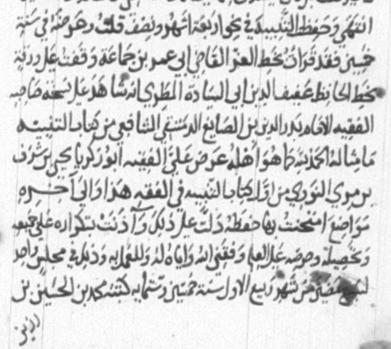 انتهى وحفظ التنبيه في نحو اربعة اشهر ونصف قلت وعرضه في سنة
خمسين فقد قرأت بخط العز القاضي ابي عمر بن جماعة وقفت على ورقة
بخط الحافظ عفيف الدين ابي السيادة المطري انه شاهد على نسخة صاحبه
الفقيه الامام بدر الدين بن الصايغ الدمشقي الشافعي من كتاب التنبيه
ما مثاله الحمد لله كما هو اهله عرض علي الفقيه ابو زكريا يحيى بن شرف
بن مري النووي من اول كتاب التنبيه في الفقه هذا والى آخره
مواضع امتحنت بها حفظه دلت على ذلك وآذنت بتكراره على جميعه
وتحصيله وحرصه على العلم وفقني الله واياه له وللعمل به وذلك في مجلس واحد
لسبع مضين من شهر ربيع الاول سنة خمسين وستمايه كتبه محمد بن الحسين بن
رزين